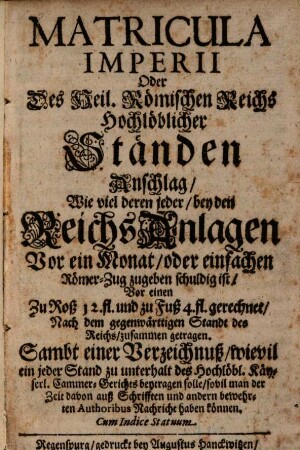 MATRICULA
IMPERII
Oder
Des Heil. Römischen Reichs
Hochlöblicher
Ständen
Anschlag/
Wie viel deren jeder/ bey den
ReichsAnlagen
Vor ein Monat/ oder einfachen
Römer-Zug zugeben schuldig ist/
Vor einen
Zu Roß 12. fl. und zu Fuß 4. fl. gerechnet/
Nach dem gegenwärttigen Standt des
Reichs/ zusammen getragen.
Sambt einer Verzeichnuß/ wievil
ein jeder Stand zu unterhalt des Hochlöbl. Käy-
serl. Cammer-Gerichts beytragen solle/ sovil man der
Zeit davon auß Schrifften und andern bewehr-
ten Authoribus Nachricht haben können.
Cum Indice Statuum.
Regenspurg/ gedruckt bey Augustus Hanckwitzen/